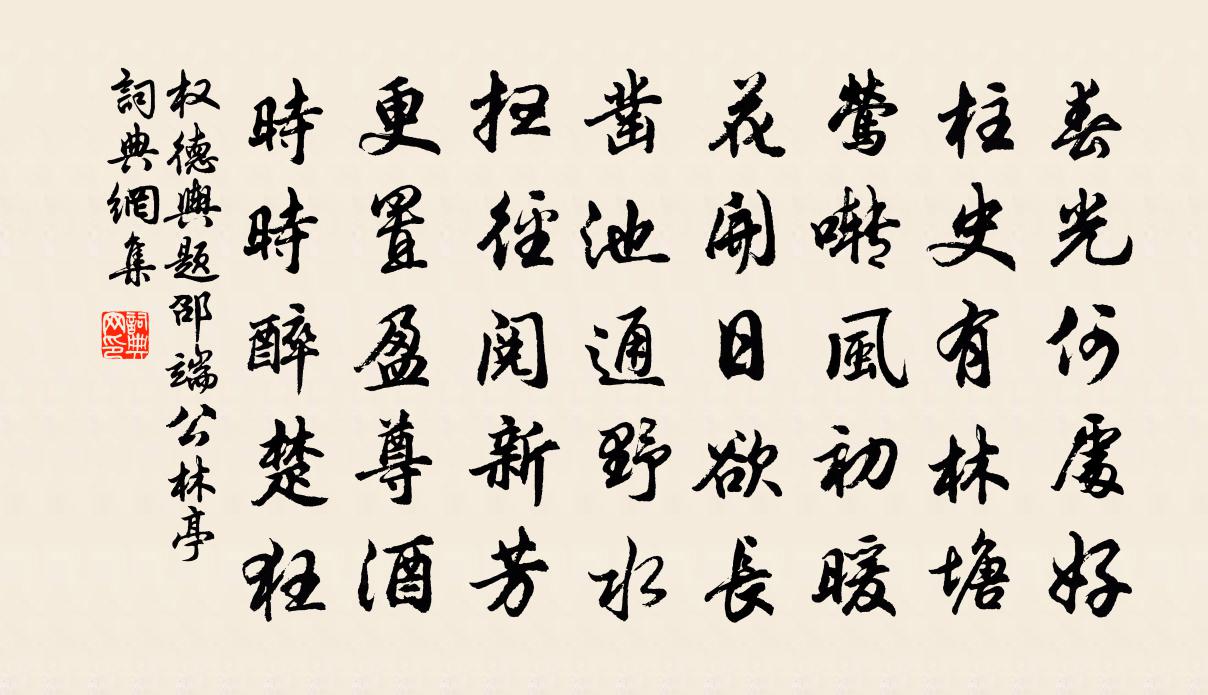 春光何處好
柱史有林塘
鶯囀風初暖
花開日欲長
鑿池通野水
掃徑閱新芳
更置盈尊酒
時時醉楚狂
权德輿題邵端公林亭
詞典網集
詞典网印